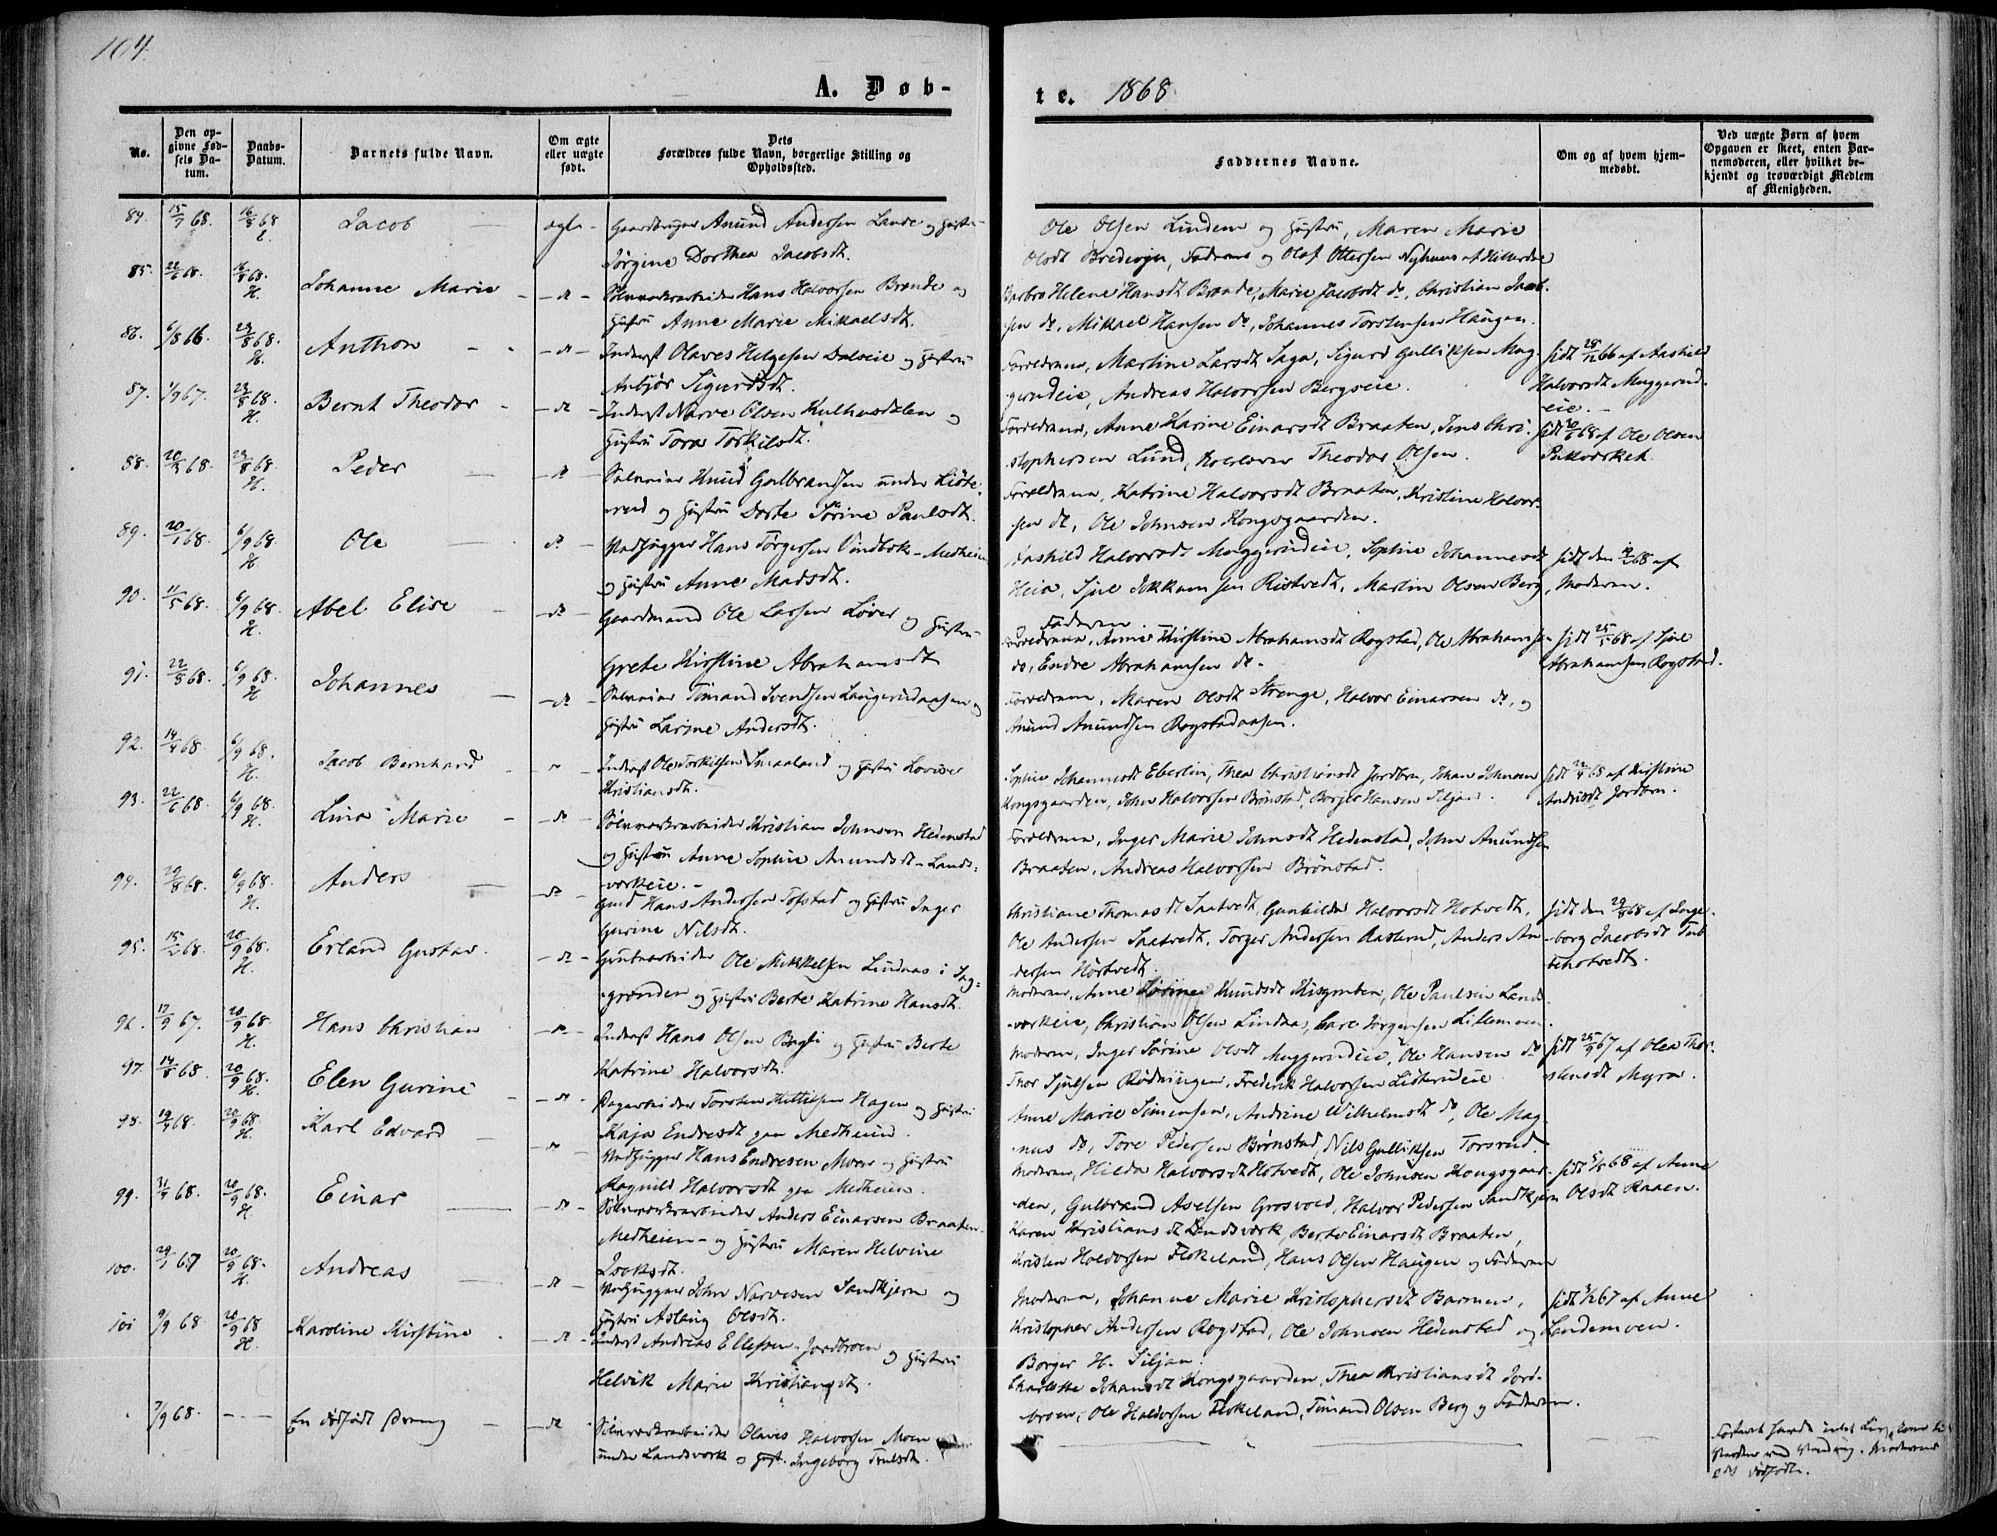 104.
A. Døb-
te. 1868
No.
Den op-
givne Fød-
sels Da-
tum.
Daabs-
Datum.
Barnets fulde Navn.
Om ægte
eller uægte
født.
Dets
Forældres fulde Navn, borgerlige Stilling og
Opholdssted.
Faddernes Navne.
Om og af hvem hjem-
medøbt.
Ved uægte Børn af hvem
Opgaven er skeet, enten Bar-
nemoderen, eller hvilket be-
kjendt og troværdigt Medlem
af Menigheden.
84. 15/7 68. 16/8 68 Jacob ægte Gaardbruger Amund Andersen Lande og Hustru
Jørgine Dorthea Jacobsdt.
Ole Olsen Lindem og Hustru, Maren Marie
Olsdt Bredesgn, Faderen og Olaf Ottersen Nyhuus
85. 22/6 68. 16/8 68. H. Johanne Marie - d - Sølvværksarbeider Hans Halvorsen Brønde og
Hustru Anne Marie Mikaelsdt.
Barbro Helene Hansdt Brønde, Marie Jacobsdt do, Christian Jacob-
sen do, Mikael Hansen do, Johannes Torstensen Haugen.
86. 6/8 66. 23/8 68. H. Anthon - d - Inderst Olaves Helgesen Dalseie og Hustru
Anbjør Sigurdsdt.
Forældrene, Martine Larsdt Saga, Sigurd Gulliksen Mug-
gerudeie, Andreas Halvorsen Bergseie.
hjdt 25/12 66 af Aashild
Halvorsdt Muggerud-
eie.
87. 1/9 67. 23/8 68. H. Bernt Theodor - d - Inderst Narve Olsen Kulhusdalen og
Hustru Tora Torkilsdt.
Forældrene, Anne Karine Einarsdt Braaten, Jens Chri-
stophersen Lund, Theodor Olsen.
hjdt 68 af Ole Olsen
88. 20/3 68. 23/8 68. H. Peder d Knud Gulbrandsen under Liste-
rud og Hustru Dorte Sørine Paulsdt.
Forældrene, Katrine Halvorsdt Braaten, Kristine Halvor-
sen do, Ole Johnsen Kongsgaarden.
89. 20/1 68. 6/9 68. H. Ole d Vedhugger Hans Jørgensen Vindbæk - Medheien
og Hustru Anne Madsdt.
Aashild Halvorsdt Muggerudeie, Sophie Johannesdt
Heia, Sjul Jokkumsen Ristvedt, Martin Olsen Berg
og Faderen.
hjdt den 68 af
Moderen.
90. 11/5 68. 6/9 68. H. Abel Elise d Gaardmand Ole Larsen Løver og Hustru
Grethe Kirstine Abrahamsdt
Forældrene, Anne Kirstine Abrahamsdt Rogstad, Ole Abrahamsen
do, Endre Abrahamsen do.
hjdt 25/5 68 af Sjul
Abrahamsen Rogstad.
91. 22/5 68. 6/9 68. H. Johannes - d - Timand Svendsen Laugerudaasen og
Hustru Larine Andersdt.
Forældrene, Maren Olsdt Strenge, Halvor Einarsen do, og
Amund Amundsen Rogstadaasen.
92. 14/4 68. 6/9 68. H. Jacob Bernhard Inderst Ole Torkilsen Smaaland og Hustru Lovise
Kristiansdt.
Sophie Johannesdt Eberlin, Thea Christiansdt Jordbro, Johan Johnsen
Kongsgaarden, John Halvorsen Brønstad, Borger Hansen Siljan.
hjdt 68 af Kirstine
Andersdt Jordbro.
93. 22/6 68. 6/9 68. H. Lina Marie - d - Sølvværksarbeider Kristian Johnsen Hedenstad
og Hustru Anne Sophie Amundsdt - Lands-
værkeie.
Forældrene, Inger Marie Johnsdt Hedenstad, John Amundsen
Braaten, Andreas Halvorsen Brønstad.
94. 29/8 68. 6/9 68. H. Anders - d - Gmd Hans Andersen Tofstad og Hustru Inger
Gurine Nilsdt.
Christiane Thomasdt Saatvedt, Gunhilde Halvorsdt Hotvedt,
Ole Andersen Saatvedt, Torger Andersen Raslerud, Anders An-
dersen Hørtvedt.
hjdt den 29/8 68 af Inge-
borg Jacobsdt
95. 15/2 68. 20/9 68. H. Erland Gustav. - d - Grubearbeider Ole Mikkelsen Lindaas i Sag-
grenden og Hustru Berte Katrine Hansdt.
Moderen, Anne Sørine Knudsdt Kisgruben, Ole Paulsen Lands-
værkeie, Christian Olsen Lindaas, Carl Jørgensen Lillemoen.
96. 17/9 67. 20/9 68. H. Hans Christian - d - Inderst Hans Olsen Bogli og Hustru Berte
Katrine Halvorsdt.
Moderen, Inger Sørine Olsdt Muggerudeie, Ole Hansen do
Thor Sjulsen Rødningen, Frederik Halvorsen Listerudeie
hjdt 25/9 67 af Olea Thor-
stensdt Myra.
97. 14/8 68. 20/9 68. H. Elen Gurine - d - Dagarbeider Torsten Kittilsen Hagen og Hustru
Kaja Endresdt paa Medheien.
Anne Marie Simensen, Andrine Wilhelmsdt do, Ole Mag-
nus do, Tore Pedersen Brønstad, Nils Gulliksen Torsrud.
98. 19/4 68. 20/9 68. H. Karl Edvard Vedhugger Hans Endresen Moen og Hustru
Ragnild Halvorsdt paa Medheien.
Moderen, Hilda Halvorsdt Hotvedt, Ole Johnsen Kongsgaar-
den, Gulbrand Axelsen Grosvold, Halvor Pedersen Sandkjern
hjdt 68 af Anne
Olsdt Raaen.
99. 68. 20/9 68. H. Einar - d - Sølvværksarbeider Anders Einarsen Braaten
Medheien - og Hustru Maren Helvine
Karen Kristiansdt Landsværk, Berte Einarsdt Braaten,
Kristen Halvorsen Flokeland, Hans Olsen Haugen og Faderen
100. 67 20/9 68. H. Andreas - d - Vedhugger John Narvesen Sandkjern og
Hustru Aslaug Olsdt.
Moderen, Johanne Marie Kristophersdt Barmen,
Kristopher Andersen Rogstad, Ole Johnsen Hedenstad og
Borger H. Siljan.
hjdt 67 af Anne
Landemoen.
101 9/9 68 20/9 68 H. Karoline Kirstine - d - Inderst Andreas Ellefsen Jordbroen og Hustru
Helvik Marie Kristiansdt.
Charlotte Johansdt Kongsgaarden, Thea Kristiansdt Jord-
broen, Ole Halvorsen Flokeland, Timand Olsen Berg og Faderen.
7/9 68. - - - En dødfødt Dreng - d Sølvværksarbeider Olaves Halvorsen Moen
under Landsværk og Hust. Ingeborg Trulsdt.
Fosteret havde intet Liv
Moderen
dødfødte.